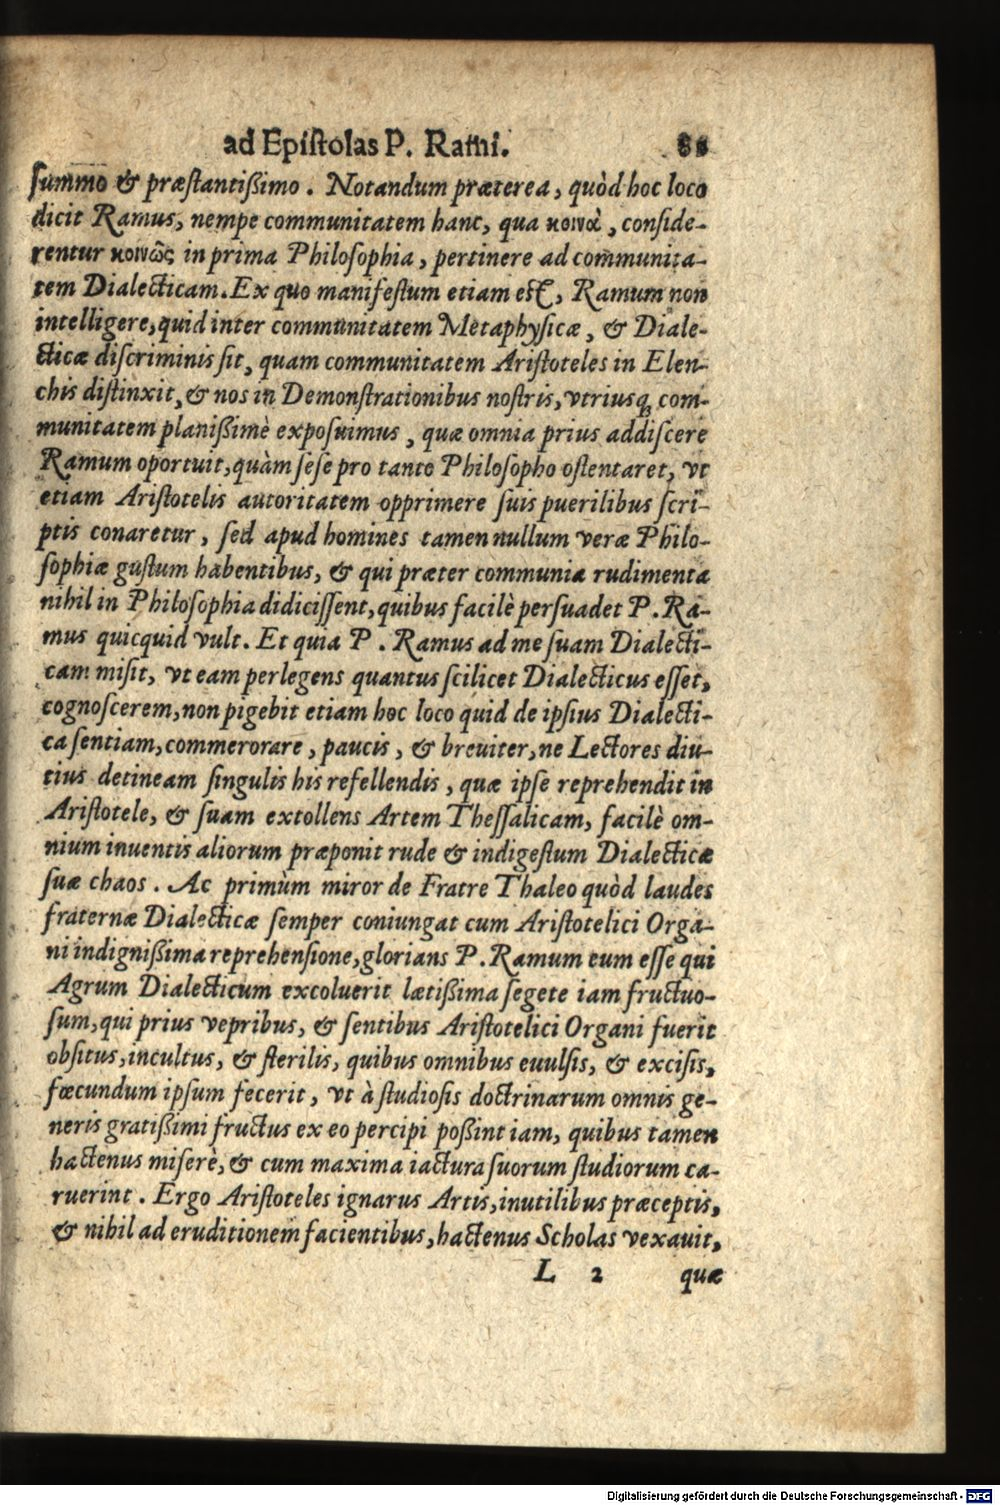 ad Epiſtolas P. Rami.
ſummo & præſtantißimo. Notandum præterea, quòd hoc loco
dicit Ramus, nempe communitatem hanc, qua κοινὰ, conſide-
rentur κοινῶς in prima Philoſophia, pertinere ad communita-
tem Dialecticam. Ex quo manifeſtum etiam eſt, Ramum non
intelligere, quid inter communitatem Metaphyſicæ, & Diale-
cticæ diſcriminis ſit, quam communitatem Ariſtoteles in Elen-
chis diſtinxit, & nos in Demonſtrationibus noſtris, vtriusq; com-
munitatem planißimè expoſuimus, quæ omnia prius addiſcere
Ramum oportuit, quàm ſeſe pro tanto Philoſopho oſtentaret, vt
etiam Ariſtotelis autoritatem opprimere ſuis puerilibus ſcri-
ptis conaretur, ſed apud homines tamen nullum veræ Philo-
ſophiæ guſtum habentibus, & qui præter communia rudimenta
nihil in Philoſophia didiciſſent, quibus facilè perſuadet P. Ra-
mus quicquid vult. Et quia P. Ramus ad me ſuam Dialecti-
cam miſit, vt eam perlegens quantus ſcilicet Dialecticus eſſet,
cognoſcerem, non pigebit etiam hoc loco quid de ipſius Dialecti-
ca ſentiam, commerorare, paucis, & breuiter, ne Lectores diu-
tius detineam ſingulis his refellendis, quæ ipſe reprehendit in
Ariſtotele, & ſuam extollens Artem Theſſalicam, facilè om-
nium inuentis aliorum præponit rude & indigeſtum Dialecticæ
ſuæ chaos. Ac primùm miror de Fratre Thaleo quòd laudes
fraternæ Dialecticæ ſemper coniungat cum Ariſtotelici Orga-
ni indignißima reprehenſione, glorians P. Ramum eum eſſe qui
Agrum Dialecticum excoluerit lætißima ſegete iam fructuo-
ſum, qui prius vepribus, & ſentibus Ariſtotelici Organi fuerit
obſitus, incultus, & ſterilis, quibus omnibus euulſis, & exciſis,
fœcundum ipſum fecerit, vt à ſtudioſis doctrinarum omnis ge-
neris gratißimi fructus ex eo percipi poßint iam, quibus tamen
hactenus miſerè, & cum maxima iactura ſuorum ſtudiorum ca-
ruerint. Ergo Ariſtoteles ignarus Artis, inutilibus præceptis,
& nihil ad eruditionem facientibus, hactenus Scholas vexauit,
L 2 quæ
Digitalisierung gefördert durch die Deutsche Forschungsgemeinschaft - DFG